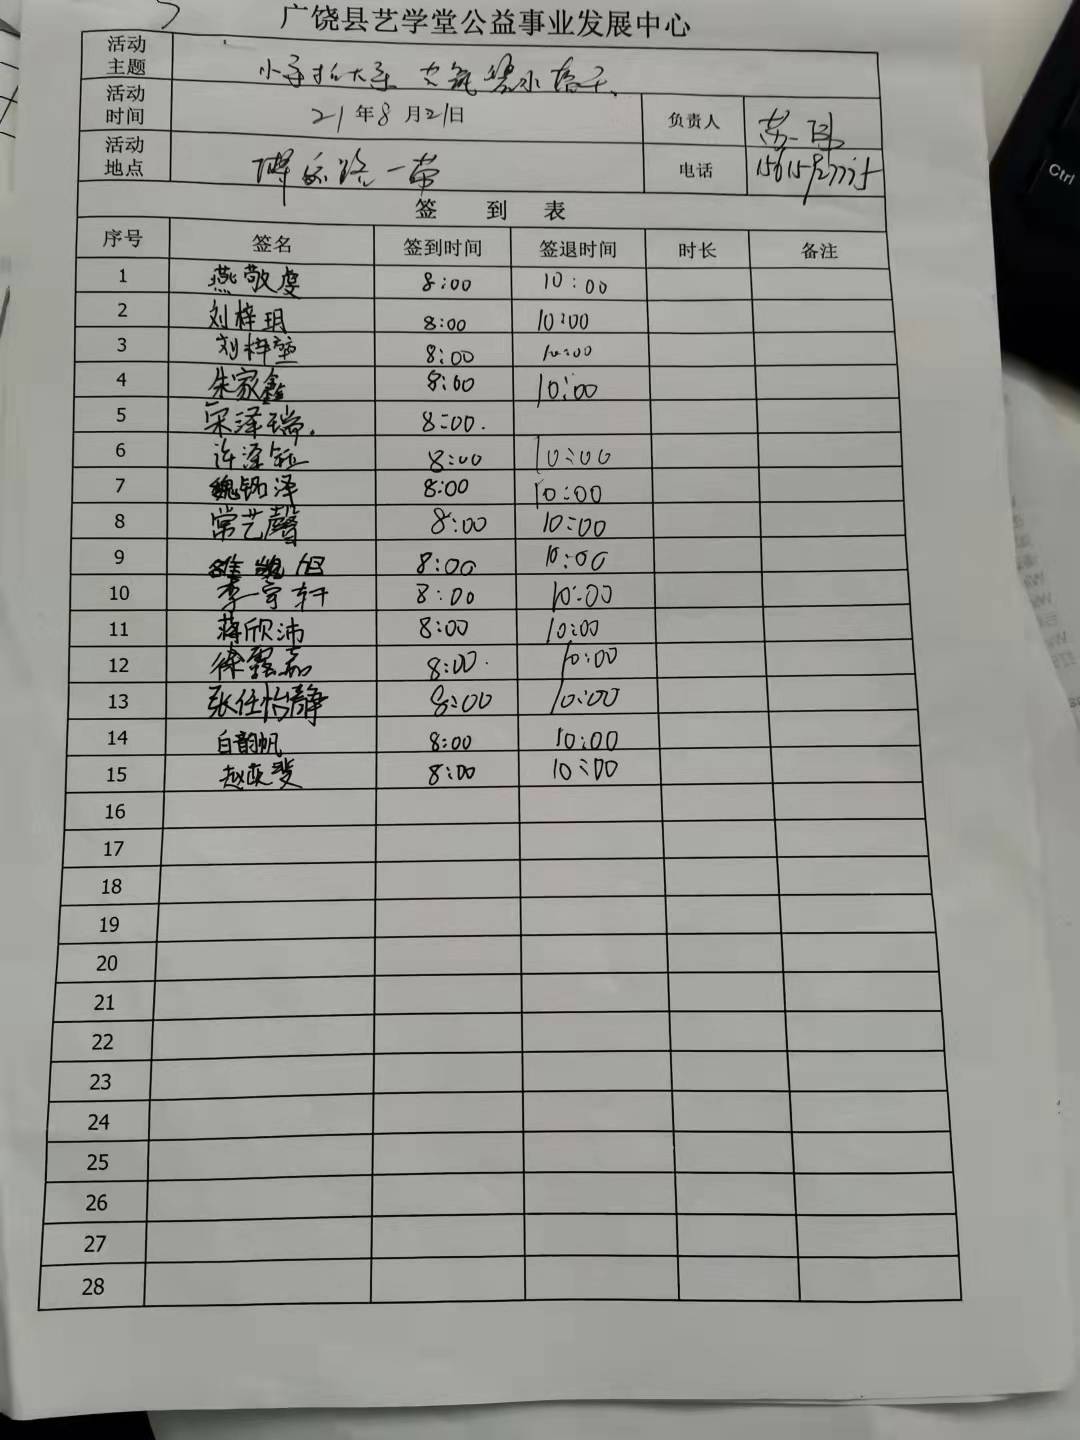 广饶县艺学堂公益事业发展中心
活动主题 小手拉大手 共筑碧水蓝天.
活动时间 21年8月21日 负责人
活动地点 电话
签 到 表
序号 签名 签到时间 签退时间 时长 备注
1 燕敬虔 8:00 10:00
2 刘梓玥 8:00 10:00
3 刘梓萱 8:00 10:00
4 朱家鑫 8:00 10:00
5 宋泽瑞. 8:00.
6 8:00 10:00
7 魏铭泽 8:00 10:00
8 常艺馨 8:00 10:00
9 8:00 10:00
10 李宇轩 8:00 10:00
11 蒋欣沛 8:00 10:00
12 8:00. 10:00
13 张任怡静 8:00 10:00
14 白韵帆 8:00 10:00
15 赵奕斐 8:00 10:00
16
17
18
19
20
21
22
23
24
25
26
27
28
Ctrl